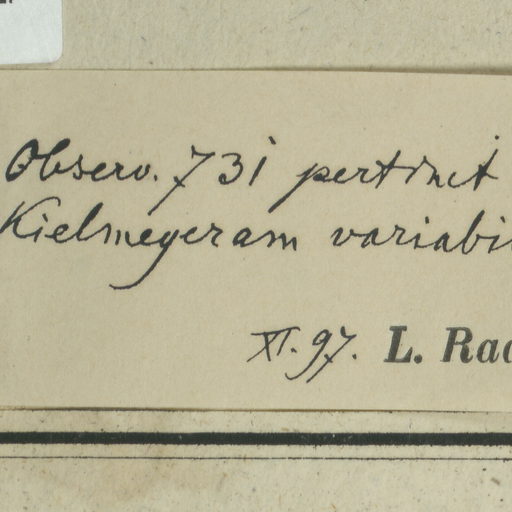 Observ. 731 pertinet
Kielmeyeram variabi
XI. 97. L. Rad